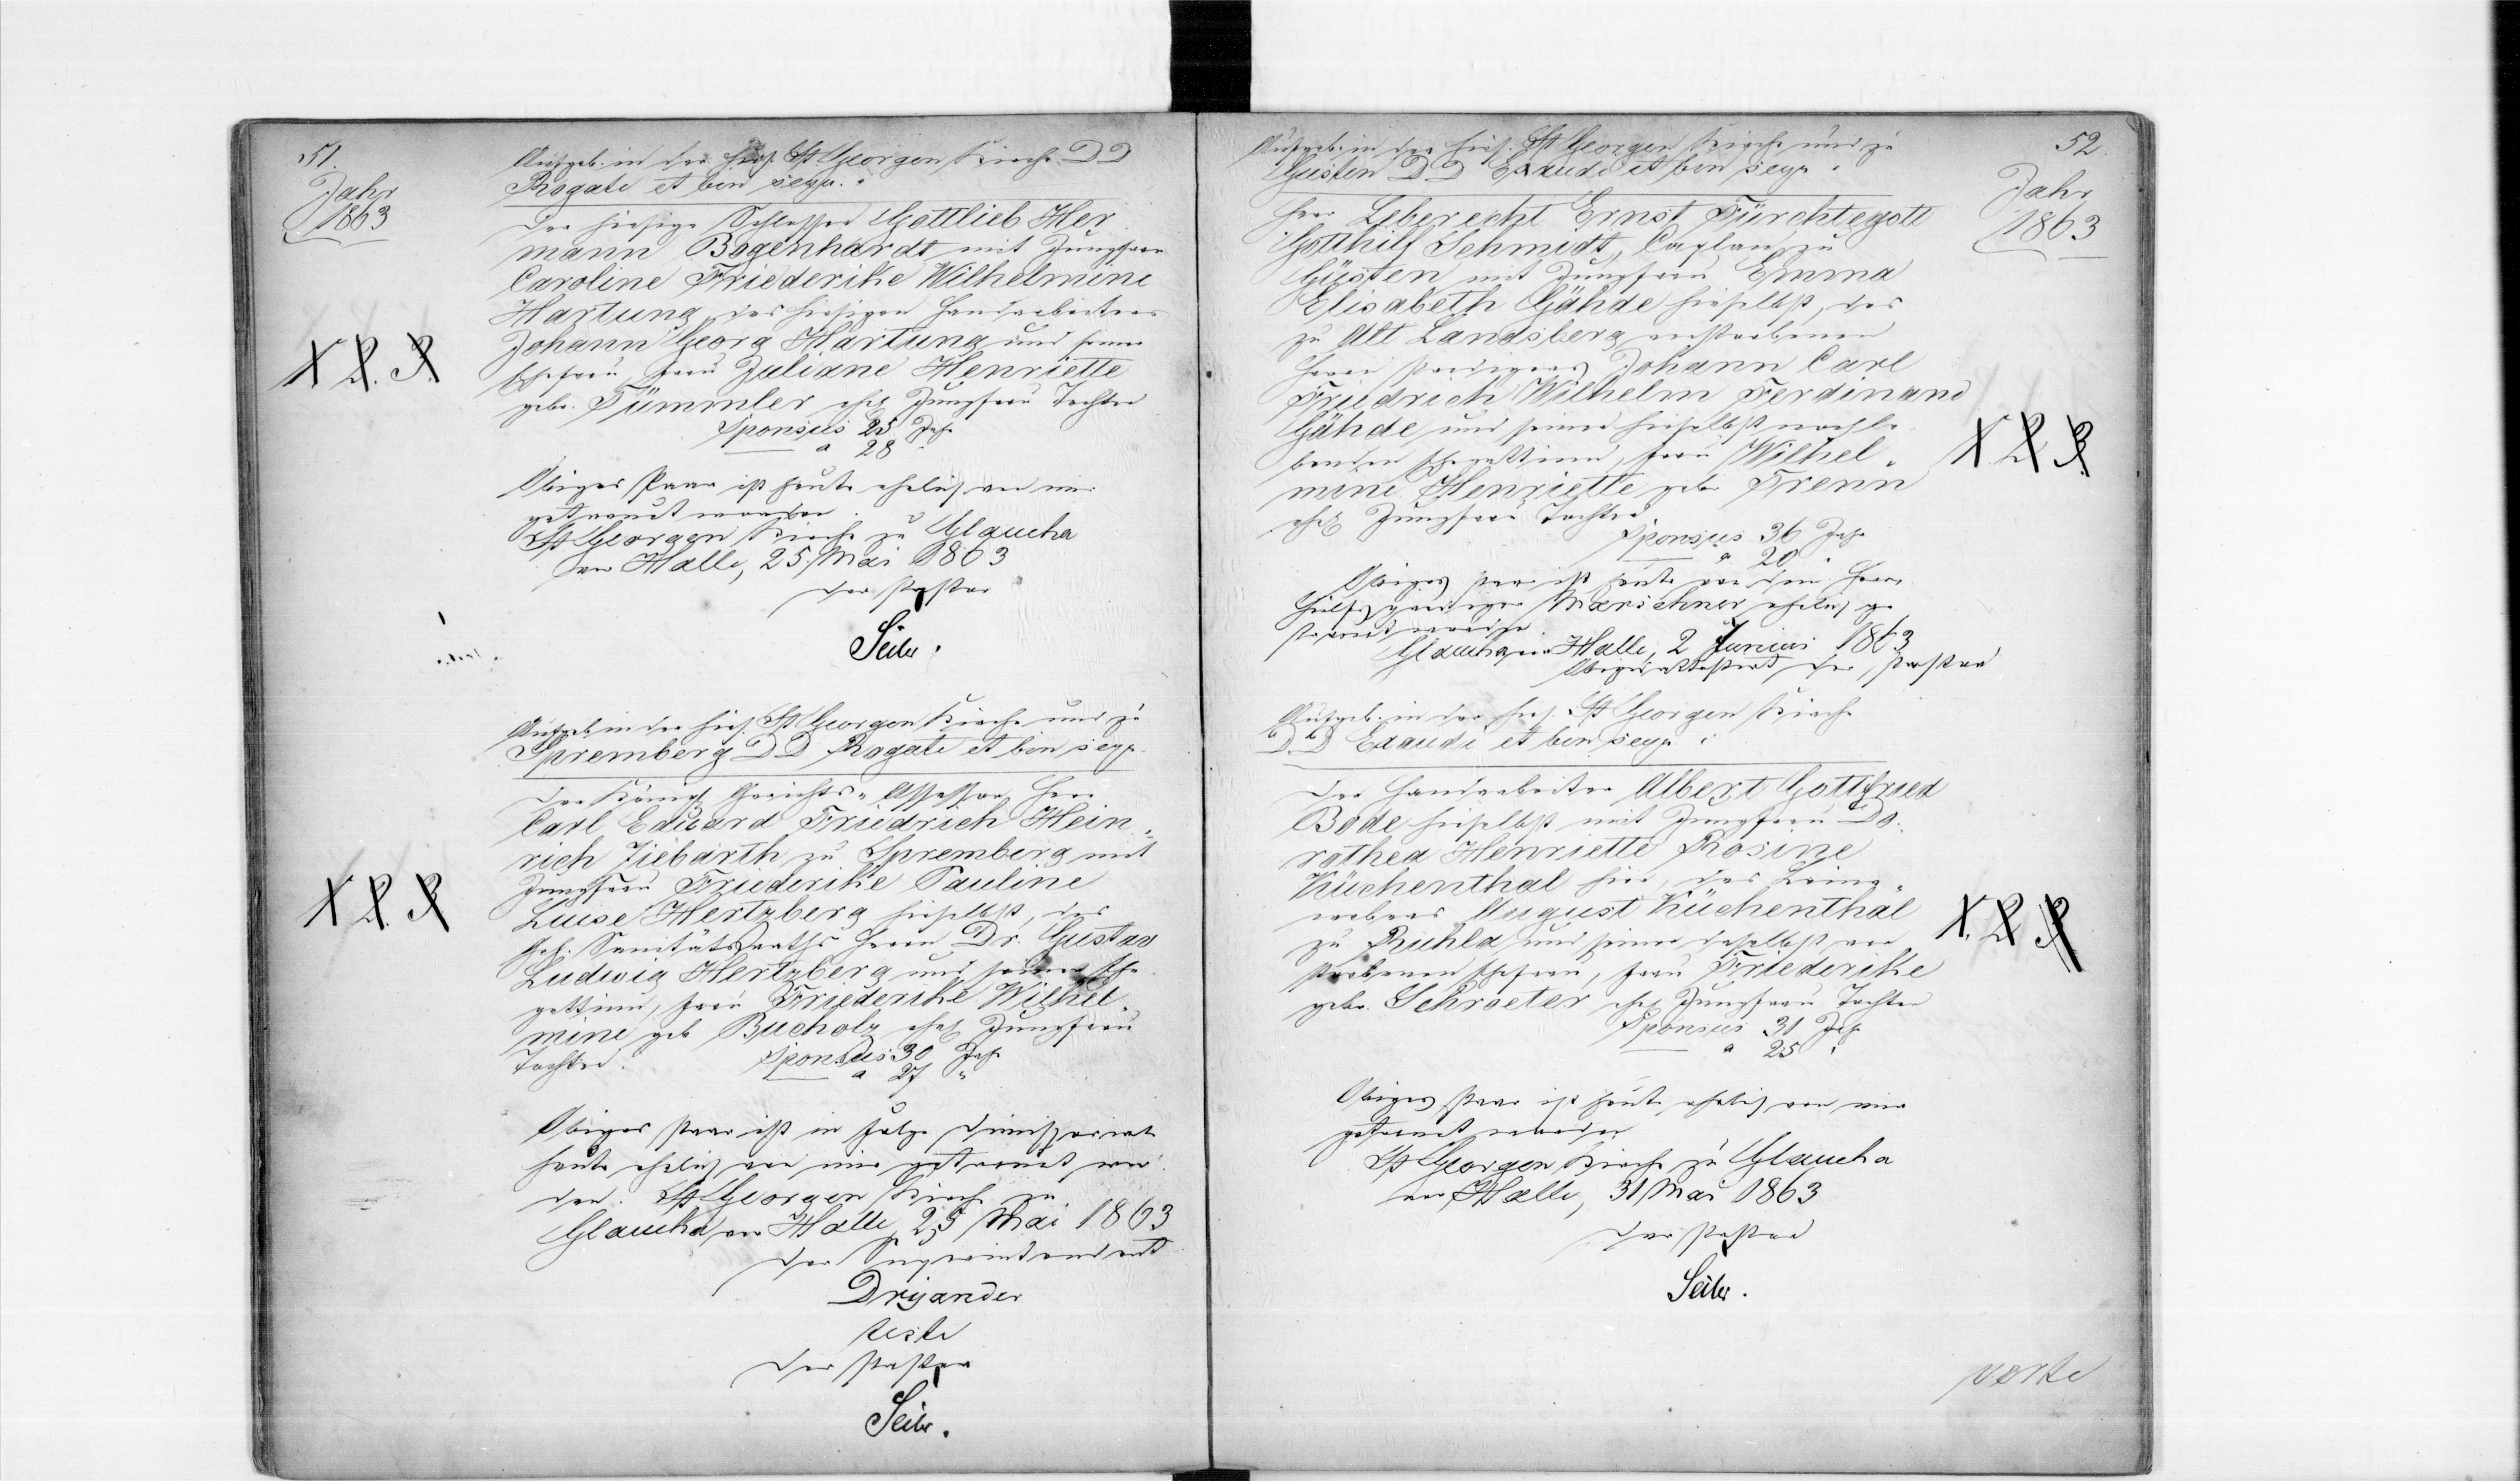 51.
Jahr
1863
Aufgeb. in der hies. St Georgen Kirche DD
Rogate et bin seqq.
Der hiesige Schlosser Gottlieb Her
mann Bogenhardt mit Jungfrau
Caroline Friederike Wilhelmine
Hartung, des hiesigen Handarbeiters
Johann Georg Hartung und seiner
Ehefrau, Frau Juliane Henriette
geb. Tümmler ehel Jungfrau Tochter
Sponsus 25 Jahr
a 28 "
Obiges Paar ist heute ehelich von mir
getraut worden.
St Georgen Kirche zu Glaucha
an Halle, 25. Mai 1863
Der Pastor
Seiler.
X L. P.
Aufgeb. in der hies. St Georgen Kirche und zu
Spremberg DD Rogate et bin seqq.
Der Königl Gerichts-Assessor Herr
Carl Eduard Friedrich Hein-
rich Ziebarth zu Spremberg mit
Jungfrau Friederike Pauline
Luise Hertzberg hieselbst, des
Geh. Sanitätsraths Herrn Dr. Gustav
Ludwig Hertzberg und seiner Ehe
gattinn, Frau Friederike Wilhel-
mine geb Bucholz ehel Jungfrau
Tochter. Sponsus 30 Jahr
a 27 "
X L. P.
Obiges Paar ist in Folge Dimissoriale
heute ehelich von mir getraut wor
den. St Georgen Kirche zu
Glaucha an Halle, 25 Mai 1863
Der Superintendent
Dryander
teste
Der Pastor
Seiler.
52.
Jahr
1863
Aufgeb. in der hies. St Georgen Kirche und zu
Güsten DD Exaudi et bin seqq.
Herr Leberecht Ernst Fürchtegott
Gotthilf Schmidt, Caplan zu
Güsten mit Jungfrau Emma
Elisabeth Gähde hieselbst, des
zu Alt Landsberg verstorbenen
Herrn Predigers Johann Carl
Friedrich Wilhelm Ferdinand
Gähde und seiner hieselbst nachle
benden Ehegattinn, Frau Wilhel-
mine Henriette geb Frenn
ehel Jungfrau Tochter
Sponsus 36 Jahr
a 20 "
X L P.
Obiges Paar ist heute von dem Herrn
Hülfsprediger Marschner ehelich ge
traut worden.
Glaucha an Halle, 2 Junius 1863
Obiges attestirt der Pastor
Aufgeb. in der hies. St Georgen Kirche
DD Exaudi et bin seqq.
Der Handarbeiter Albert Gottfried
Bode hieselbst mit Jungfrau Do-
rothea Henriette Rosine
Küchenthal hier, des Leine-
webers August Küchenthal
zu Ruhla und seiner daselbst ver
storbenen Ehefrau, Frau Friederike
geb. Schroeter ehel Jungfrau Tochter
Sponsus 31 Jahr
a 25 "
X. L P
Obiges Paar ist heute ehelich von mir
getraut worden
St Georgen Kirche zu Glaucha
an Halle, 31 Mai 1863
Der Pastor
Seiler.
verte